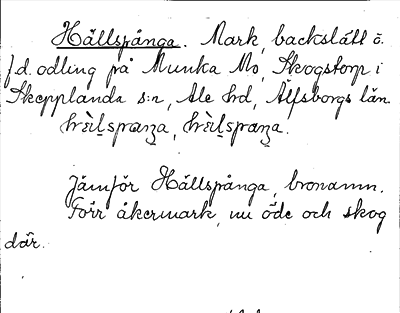 Hällspånga. Mark, backslätt o.
f.d. odling på Munka Mo, Skogstorp i
Skepplanda s:n, Ale hd, Älfsborgs län.
Jämför Hällspånga, bronamn.
Förr åkermark, nu öde och skog
där.